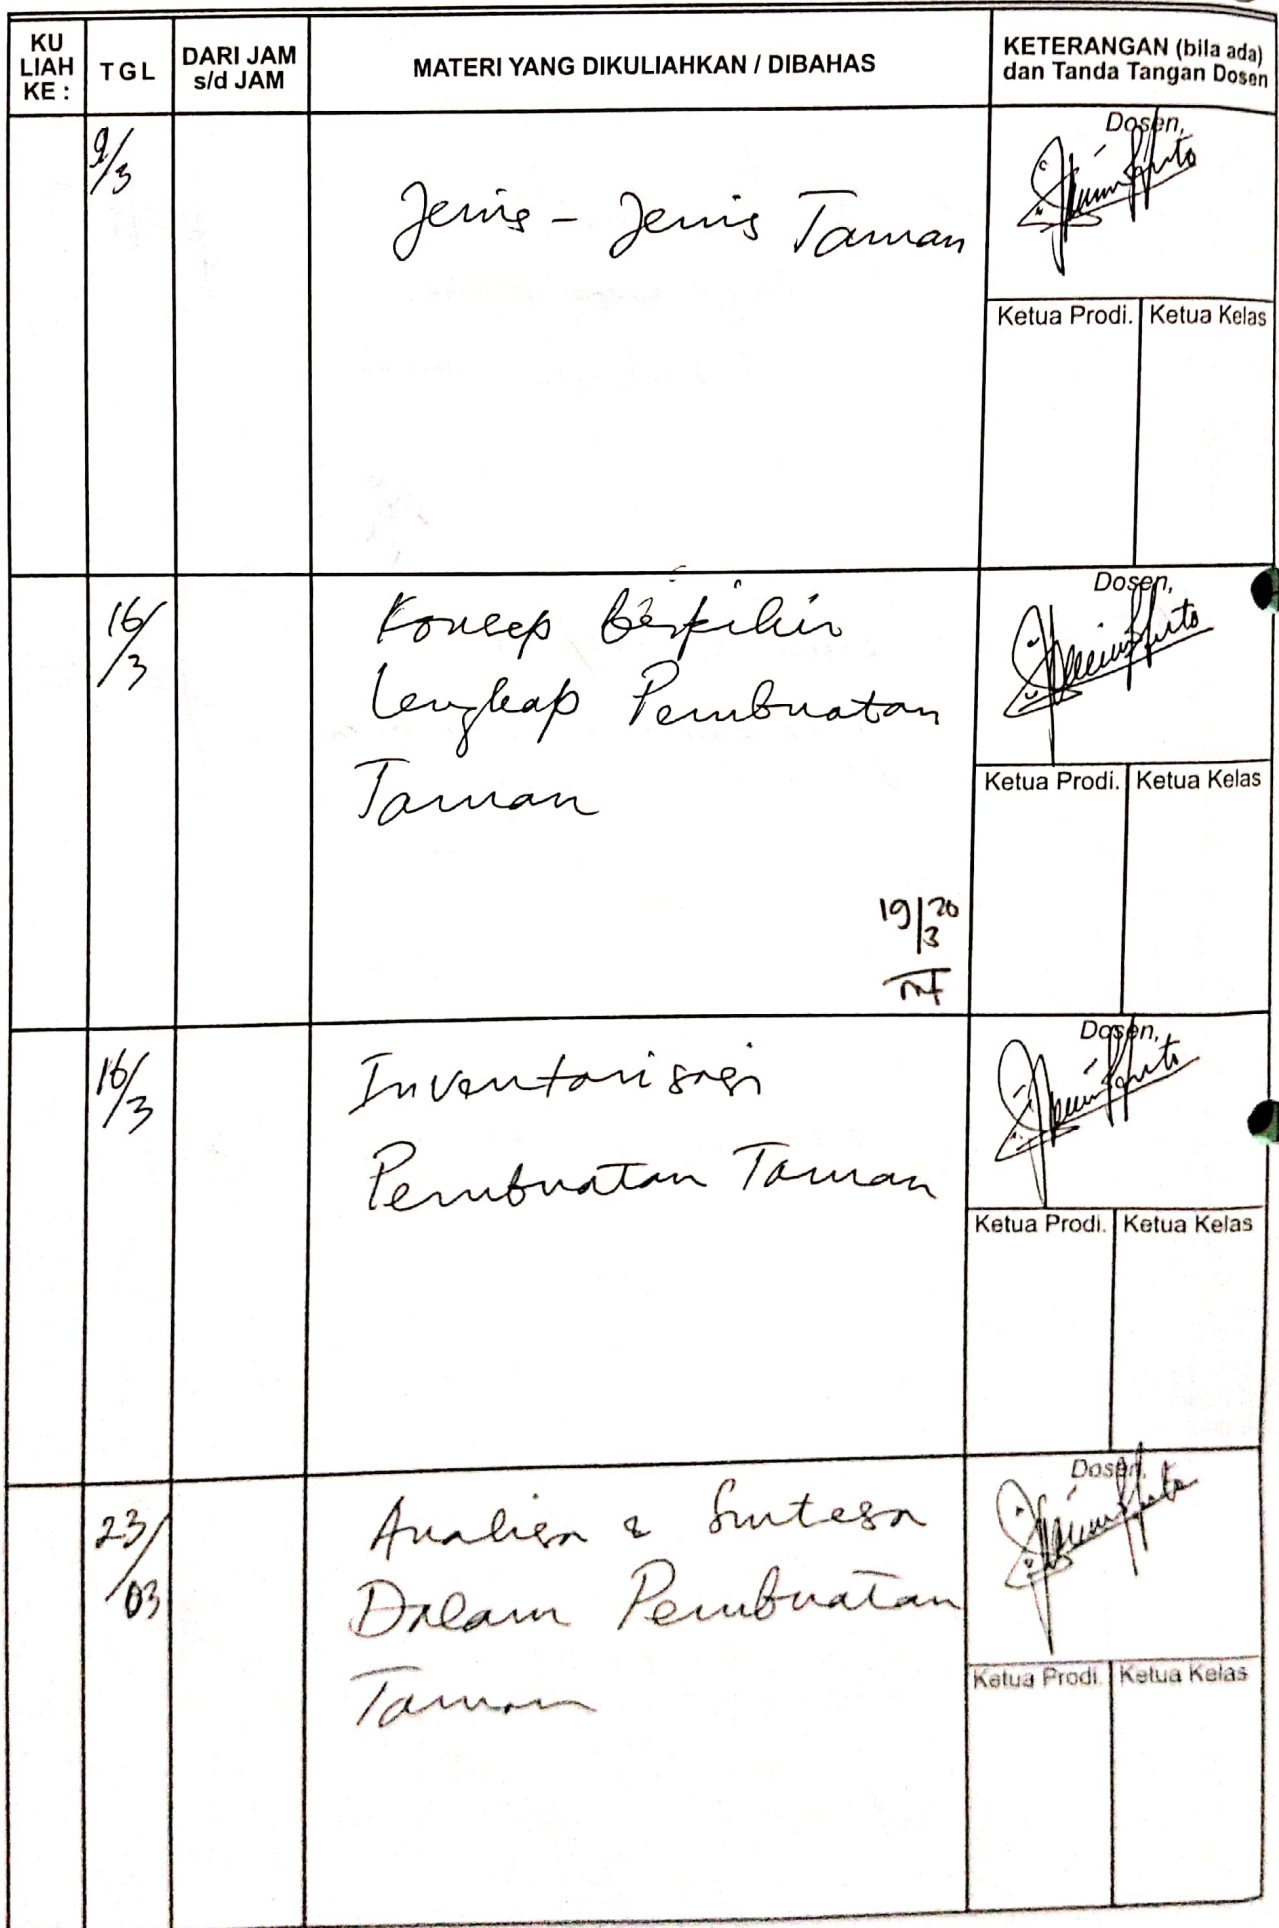 KU
LIAH
KE :
TGL
DARI JAM
s/d JAM
MATERI YANG DIKULIAHKAN / DIBAHAS
KETERANGAN (bila ada)
dan Tanda Tangan Dosen
9/3
Jenis - Jenis Taman
Dosen,
Ketua Prodi. Ketua Kelas
16/3
Konsep berfikir
Lengkap Pembuatan
Taman
19/20
3
Dosen,
Ketua Prodi. Ketua Kelas
16/3
Inventarisasi
Pembuatan Taman
Dosen,
Ketua Prodi. Ketua Kelas
23/03
Analisa & Sintesa
Dalam Pembuatan
Taman
Dosen,
Ketua Prodi. Ketua Kelas